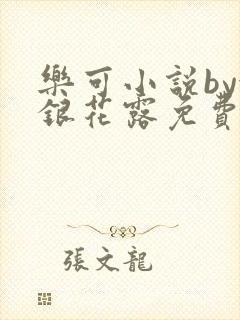 樂可小說by
銀花露免費
張文龍